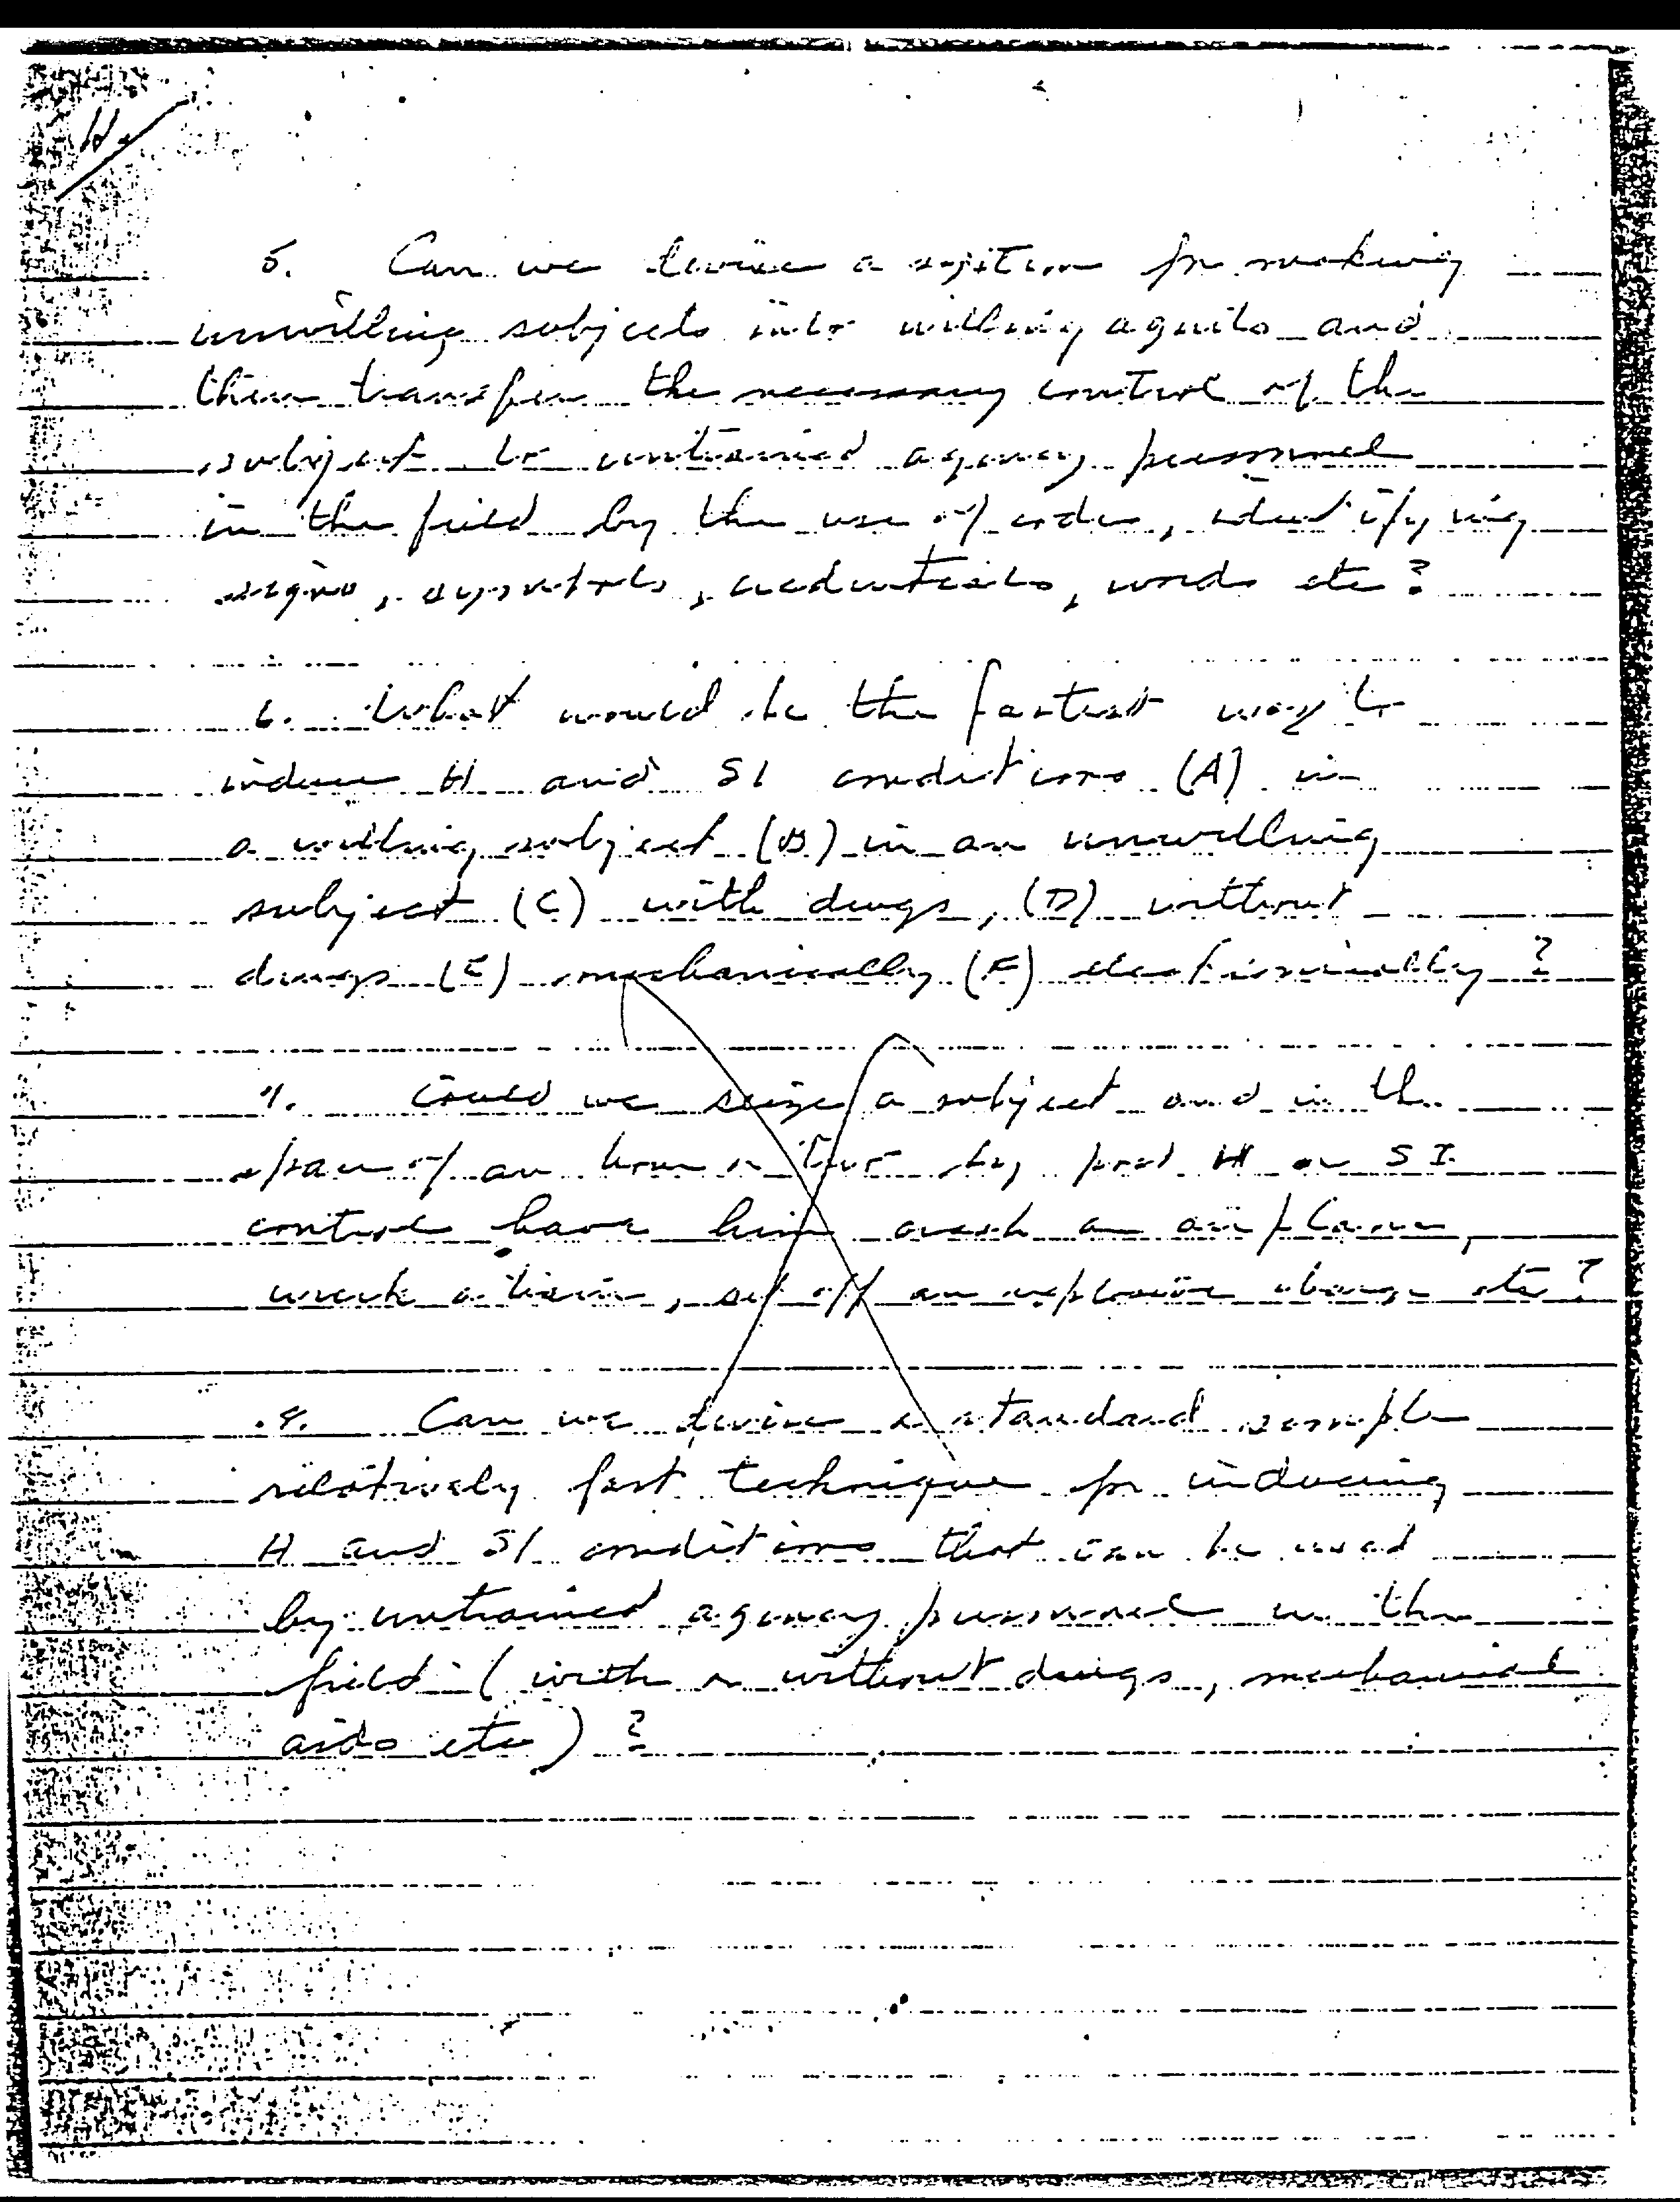 5. Can we devise a system for making
unwilling subjects into willing agents and
then transfer the necessary control of the
subject to untrained agency personnel
in the field by the use of codes, identifying
signs, symbols, credentials, words etc?
6. What would be the fastest way to
induce H and SI conditions (A) in
a willing subject (B) in an unwilling
subject (C) with drugs, (D) without
drugs (E) mechanically (F) electronically?
7. Could we seize a subject and in the
space of an hour or two by post H or SI
control have him crash an airplane,
wreck a train, set off an explosive charge etc?
8. Can we devise a standard simple
relatively fast technique for inducing
H and SI conditions that can be used
by untrained agency personnel in the
field (with or without drugs, mechanical
aids etc)?